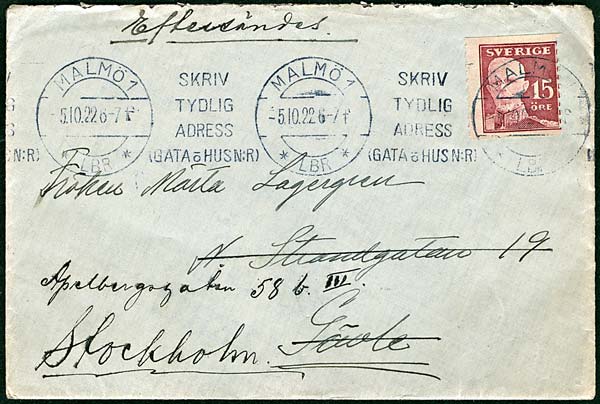 Eftersändes.
MALMÖ 1 SKRIV MALMÖ 1 SKRIV MALM SVERIGE
TYDLIG TYDLIG 15
5.10.22 6-7 F 5.10.22 6-7 F ÖRE
ADRESS ADRESS
LBR (GATA o HUSN:R) * LBR * (GATA o HUSN:R) LBR
N:R)
Fröken Märta Lagergren
N. Strandgatan 19
Apelbergsgatan 58 b. III.
Stockholm. Gävle